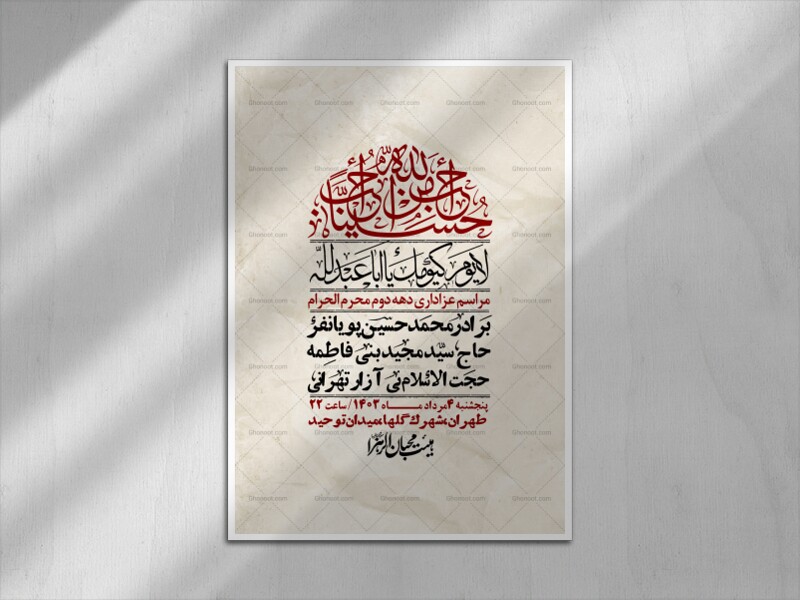 أحب الله من أحب حسینا
لا یوم کیومك یا أبا عبدالله
مراسم عزاداری دهه دوم محرم الحرام
برادر محمدحسین پویانفر
حاج سیّد مجید بنی فاطمه
حجت الاسلام بی آزار تهرانی
پنجشنبه ۴ مرداد مـاه ۱۴۰۳/ ساعت ۲۲
طهران،شهرك گلها،میدان توحید
هیئت محبان الزهرا
Ghonoot.com